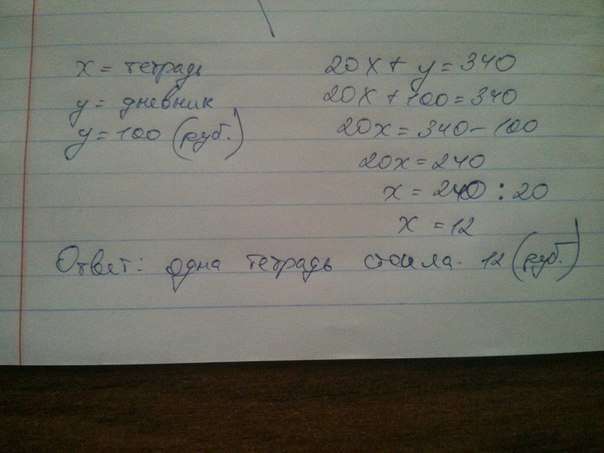 x = тетрадь
y = дневник
y = 100 (руб.)
20x + y = 340
20x + 100 = 340
20x = 340 - 100
20x = 240
x = 240 : 20
x = 12
Ответ: одна тетрадь стоила 12 (руб.)